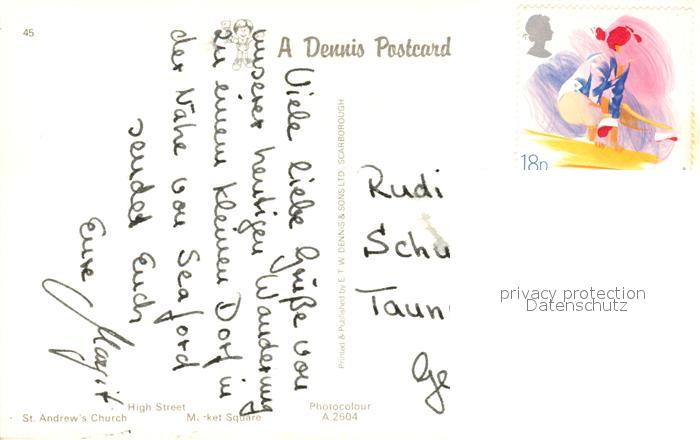 45
A Dennis Postcard
18p
Viele liebe Grüße von
unserer heutigen Wanderung
zu einem kleinen Dorf in
der Nähe von Seaford
sendet Euch
Eure Margit
Printed & Published by E.T.W. DENNIS & SONS LTD. SCARBOROUGH
Rudi
Schu
Taun
Ge
privacy protection
Datenschutz
High Street
St. Andrew's Church
Market Square
Photocolour
A.2604